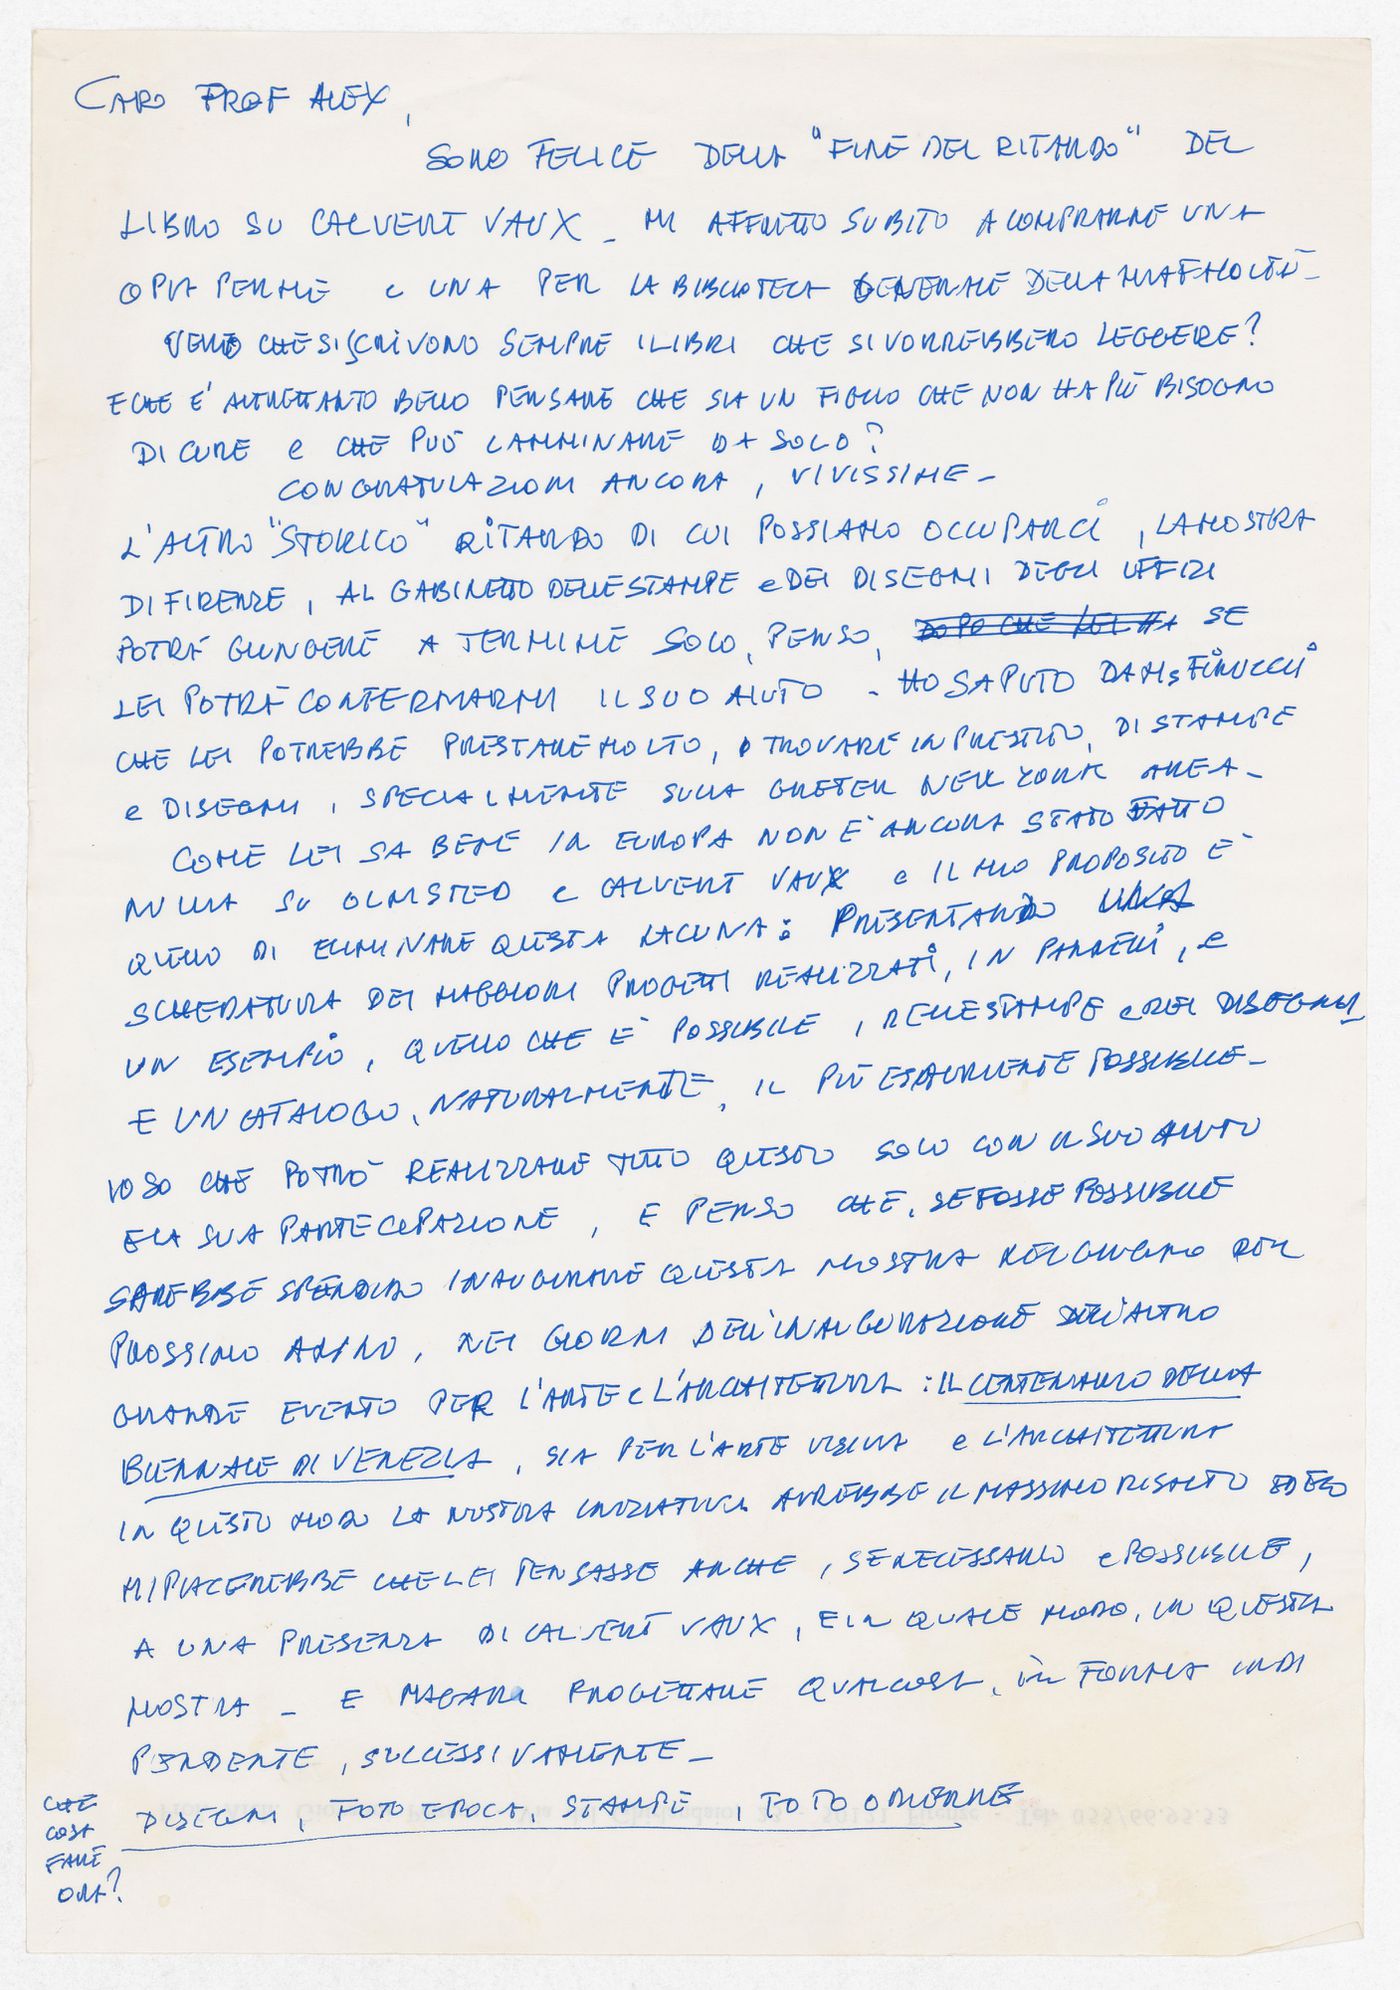 CARO PROF ALEX,
SONO FELICE DELLA "FINE DEL RITARDO" DEL
LIBRO SU CALVERT VAUX _ MI AFFRETTO SUBITO A COMPRARNE UNA
COPIA PER ME e UNA PER LA BIBLIOTECA GENERALE DELLA MIA FACOLTÀ _
VERO CHE SI SCRIVONO SEMPRE I LIBRI CHE SI VORREBBERO LEGGERE?
E CHE E' ALTRETTANTO BELLO PENSARE CHE SIA UN FIGLIO CHE NON HA PIÙ BISOGNO
DI CURE e CHE PUÒ CAMMINARE DA SOLO?
CONGRATULAZIONI ANCORA, VIVISSIME _
L'ALTRO "STORICO" RITARDO DI CUI POSSIAMO OCCUPARCI, LA MOSTRA
DI FIRENZE, AL GABINETTO DELLE STAMPE e DEI DISEGNI DEGLI UFFIZI
POTRÀ GIUNGERE A TERMINE SOLO, PENSO, DOPO CHE LEI HA SE
LEI POTRÀ CONFERMARMI IL SUO AIUTO _ HO SAPUTO DA Ms FINUCCI
CHE LEI POTREBBE PRESTARE MOLTO, O TROVARE IN PRESTITO, DI STAMPE
e DISEGNI, SPECIALMENTE SULLA GRETER NEW YORK AREA _
COME LEI SA BENE IN EUROPA NON E' ANCORA STATO FATTO
NULLA SU OLMSTED e CALVERT VAUX e IL MIO PROPOSITO E'
QUELLO DI ELIMINARE QUESTA LACUNA: PRESENTANDO UNA
SCHEDATURA DEI MAGGIORI PROGETTI REALIZZATI, IN PANNELLI, e
UN ESEMPIO, QUELLO CHE E' POSSIBILE, NELLE STAMPE e NEI DISEGNI
E UN CATALOGO, NATURALMENTE, IL PIÙ ESAURIENTE POSSIBILE _
IO SO CHE POTRÒ REALIZZARE TUTTO QUESTO SOLO CON IL SUO AIUTO
E LA SUA PARTECIPAZIONE, E PENSO CHE, SE FOSSE POSSIBILE
SAREBBE SPENDIDO INAUGURARE QUESTA MOSTRA NEL GIUGNO DEL
PROSSIMO ANNO, NEI GIORNI DELL'INAUGURAZIONE DELL'ALTRO
GRANDE EVENTO PER L'ARTE e L'ARCHITETTURA: IL CENTENARIO DELLA
BIENNALE DI VENEZIA, SIA PER L'ARTE VISIVA e L'ARCHITETTURA
IN QUESTO MODO LA NOSTRA INIZIATIVA AVREBBE IL MASSIMO RISALTO
MI PIACEREBBE CHE LEI PENSASSE ANCHE, SE NECESSARIO e POSSIBILE,
A UNA PRESENZA DI CALVERT VAUX, E IN QUALE MODO, IN QUESTA
MOSTRA _ E MAGARI PROGETTARE QUALCOSA, IN FORMA INDI
PENDENTE, SUCCESSIVAMENTE _
CHE COSA FARE ORA?
DISEGNI, FOTO EPOCA, STAMPE, FOTO ODIERNE